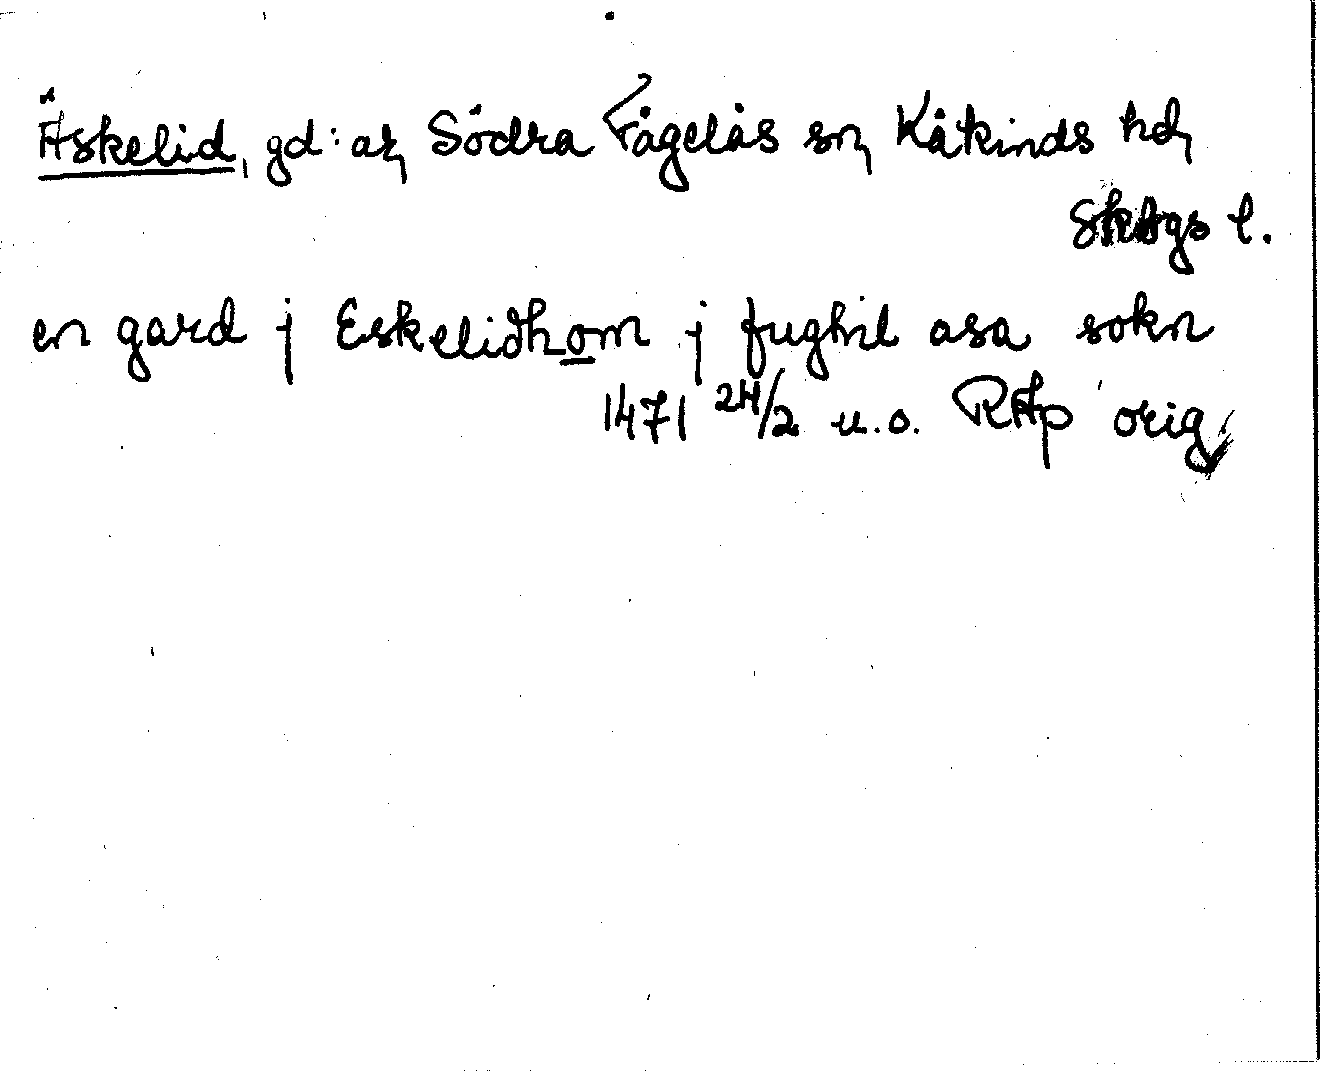 Äskelid, gd:ar, Södra Fågelås sn, Kåkinds hd,
Skbgs l.
en gard j Eskelidhom j fughil asa sokn
1471 24/2 u.o. RAp orig